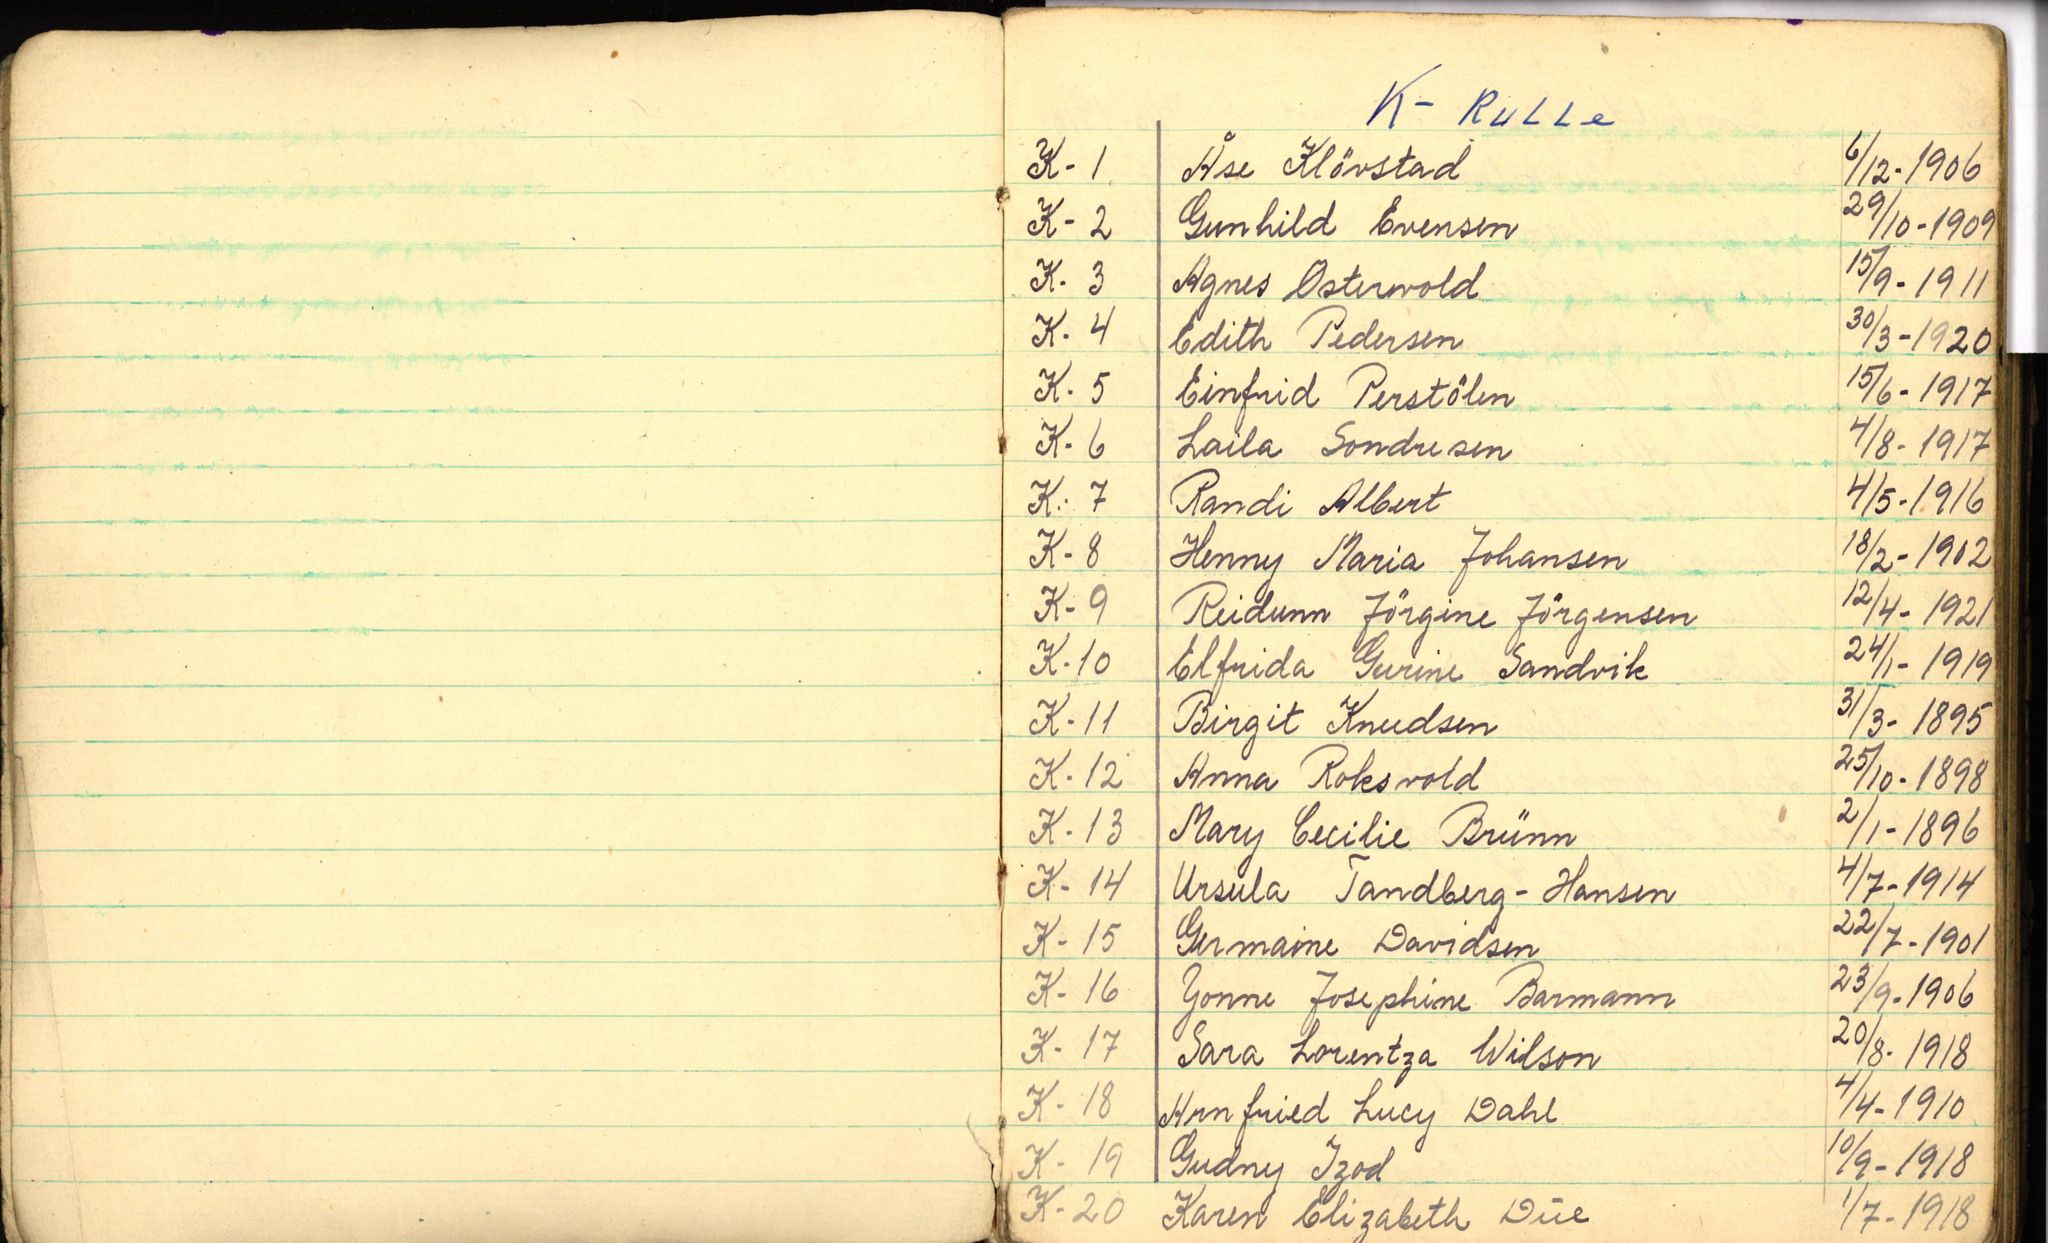 K- Rulle
K- 1 Åse Klövstad 6/12-1906
K- 2 Gunhild Evensen 29/10-1909
K. 3 Agnes Osterwold 15/9-1911
K. 4 Edith Pedersen 30/3-1920
K. 5 Einfrid Perstölen 15/6-1917
K- 6 Laila Sondresen 4/8-1917
K. 7 Randi Albert 4/5-1916
K- 8 Henny Maria Johansen 18/2-1902
K- 9 Reidunn Jörgine Jörgensen 12/4-1921
K-10 Elfrida Gurine Sandvik 24/1-1919
K-11 Birgit Knudsen 31/3-1895
K-12 Anna Roksvold 25/10-1898
K-13 Mary Cecilie Brünn 2/1-1896
K-14 Ursula Tandberg-Hansen 4/7-1914
K-15 Germaine Davidsen 22/7-1901
K-16 Yonne Josephine Barmann 23/9-1906
K-17 Sara Lorentza Wilson 20/8-1918
K-18 Arnfried Lucy Dahl 4/4-1910
K-19 Gudny Izod 10/9-1918
K-20 Karen Elizabeth Düe 1/7-1918